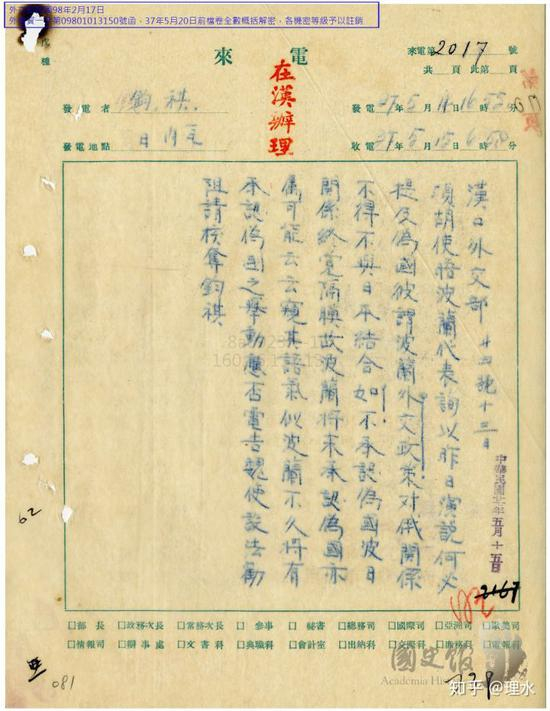 98年2月17日
第09801013150號函，37年5月20日前檔卷全數概括解密，各機密等級予以註銷
來電
來電第2017號
共 頁此第 頁
在漢辦理
發電者 鈞祺
27年5月14日16時55分
發電地點 日內瓦
收電 27年5月15日6時50分
漢口外交部 廿四號十三日
頃胡使晤波蘭代表詢以昨日演說何必
提及偽國彼謂波蘭外交政策對俄關係
不得不與日本結合如不承認偽國波日
關係終覺隔膜故波蘭將來承認偽國亦
屬可能云云窺其語氣似波蘭不久將有
承認偽國之舉動應否電告魏使設法勸
阻請核奪鈞祺
中華民國廿七年五月十五日
2167
62
□部長 □政務次長 □常務次長 □參事 □秘書 □總務司 □國際司 □亞洲司 □歐美司
□情報司 □辦事處 □文書科 □典職科 □會計室 □出納科 □交際科 □庶務科 □電報科
081
國史館
Academia Hi
知乎 @理水